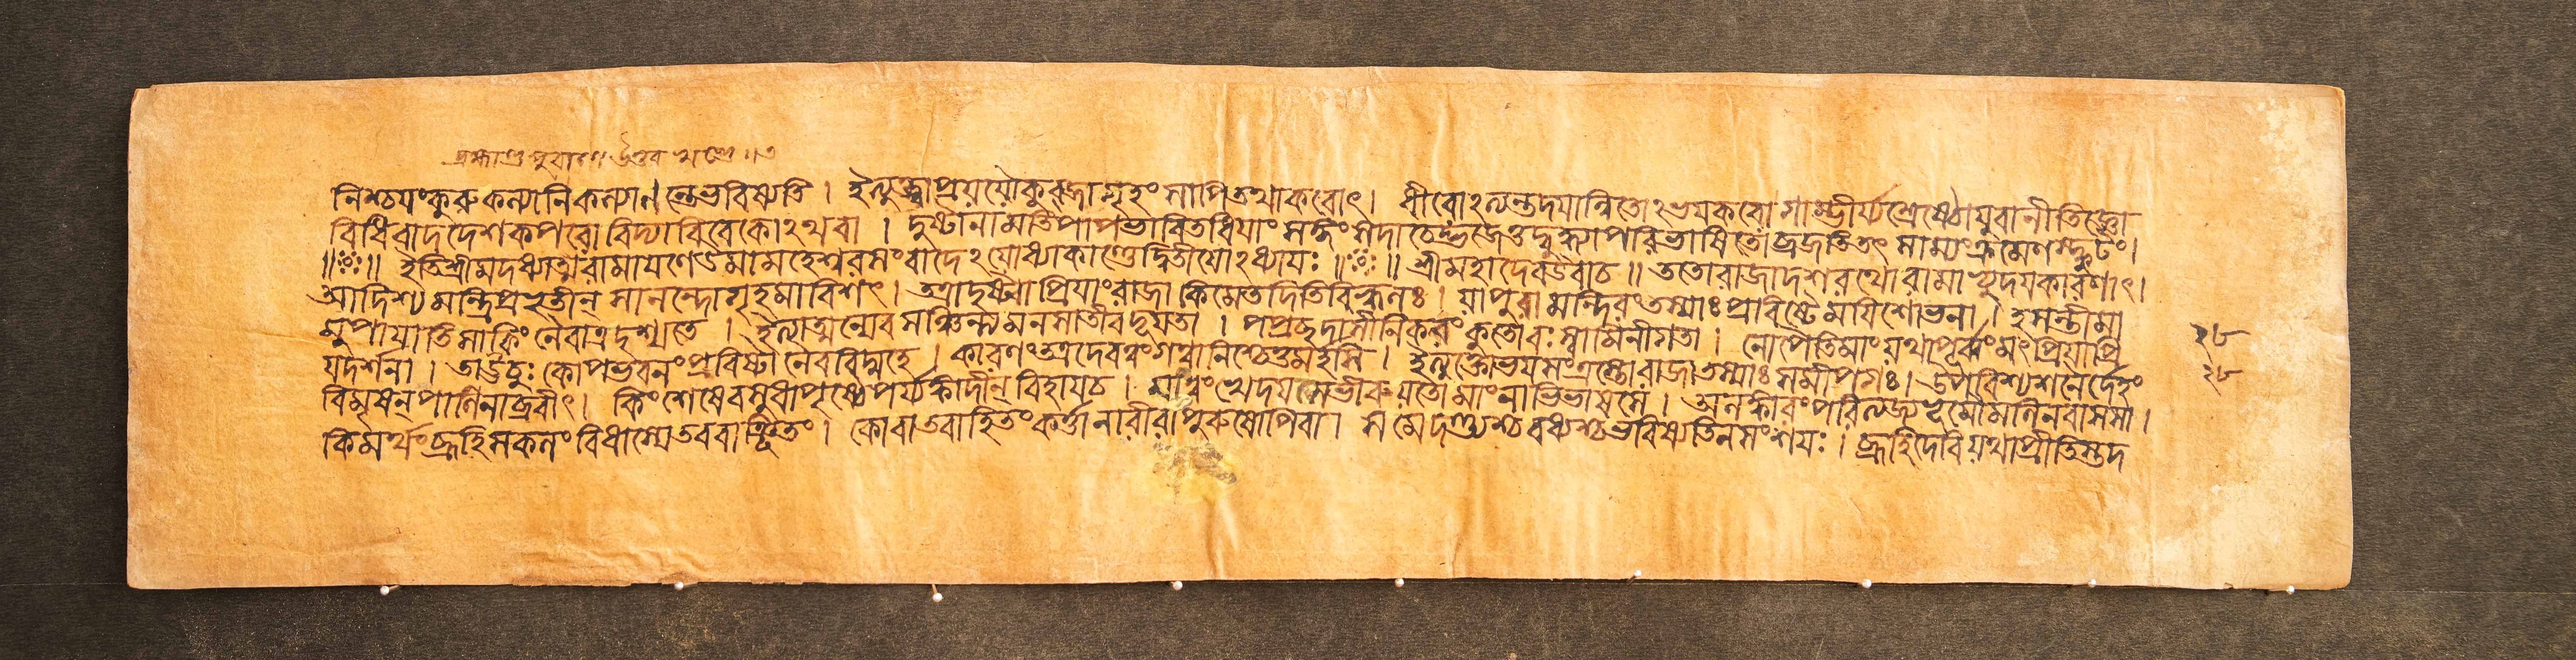 ব্রহ্মাণ্ডপুরাণে উত্তর খণ্ডে ॥৩
নিশ্চয়ংকুরুকল্যাণিকল্যাণন্তেভবিষ্যতি । ইত্যুক্ত্বাপ্রযযৌকুব্জাগৃহং সাপিতথাকরোৎ। ধীরোঽত্যন্তদয়ান্বিতোঽভয়করো গাম্ভীর্য্যশ্রেষ্ঠোযুবানীতিজ্ঞো
বিধিবাদদেশকপরো বিদ্যাবিবেকোঽথবা । দুষ্টানামতিপাপভাবিতধিয়াং সঙ্গং সদাচেদ্ভজেত্তদ্বুদ্ধ্যাপরিভাবিতোব্রজতিতৎ সাম্যংক্রমেণস্ফুটং।
॥ঃ০ঃ॥ ইতিশ্রীমদধ্যাত্মরামায়ণেউমামহেশ্বরসংবাদেঽযোধ্যাকাণ্ডেদ্বিতীয়োঽধ্যায়ঃ ॥ঃ০ঃ॥ শ্রীমহাদেবউবাচ ॥ ততোরাজাদশরথোরামাভ্যুদয়কারণাৎ।
আদিশ্যমন্ত্রিপ্রকৃতীন্ সানন্দোগৃহমাবিশৎ। তত্রাদৃষ্ট্বাপ্রিয়াংরাজা কিমেতদিতিবিহ্বলঃ । যাপুরামন্দিরংতস্যাঃপ্রবিষ্টেময়িশোভনা । হসন্তীমা
মুপায়াতিসাকিং নৈবাত্রদৃশ্যতে । ইত্যাত্মন্যেবসঞ্চিন্ত্যমনসাতীবদূয়তা । পপ্রচ্ছদাসীনিকরং কুতোবঃস্বামিনীগতা । নোপৈতিমাংযথাপূর্ব্বংমৎপ্রিয়াপ্রি
যদর্শনা । তাঊচুঃকোপভবনংপ্রবিষ্টা নৈববিদ্মহে । কারণংতত্রদেবত্বংগত্বানিশ্চেতুমর্হসি । ইত্যুক্তোভয়সংত্রস্তোরাজাতস্যাঃসমীপগঃ। উপবিশ্যশনৈর্দেহং
বিমৃষন্পাণিনাব্রবীৎ। কিংশেষেবসুধাপৃষ্ঠেপর্য্যঙ্কাদীন্ বিহায়চ । মাংত্বংখেদয়সেভীরুযতোমাংনাভিভাষসে । অলঙ্কারংপরিত্যজ্যভূমৌমলিনবাসসা।
কিমর্থংব্রূহিসকলংবিধাস্যেতববাঞ্ছিতং। কোবাতবাহিতংকর্ত্তানারীবাপুরুষোপিবা । সমেদণ্ড্যশ্চবধ্যশ্চভবিষ্যতিনসংশয়ঃ । ব্রূহিদেবিযথাপ্রীতিস্তদ
২৮
২৮